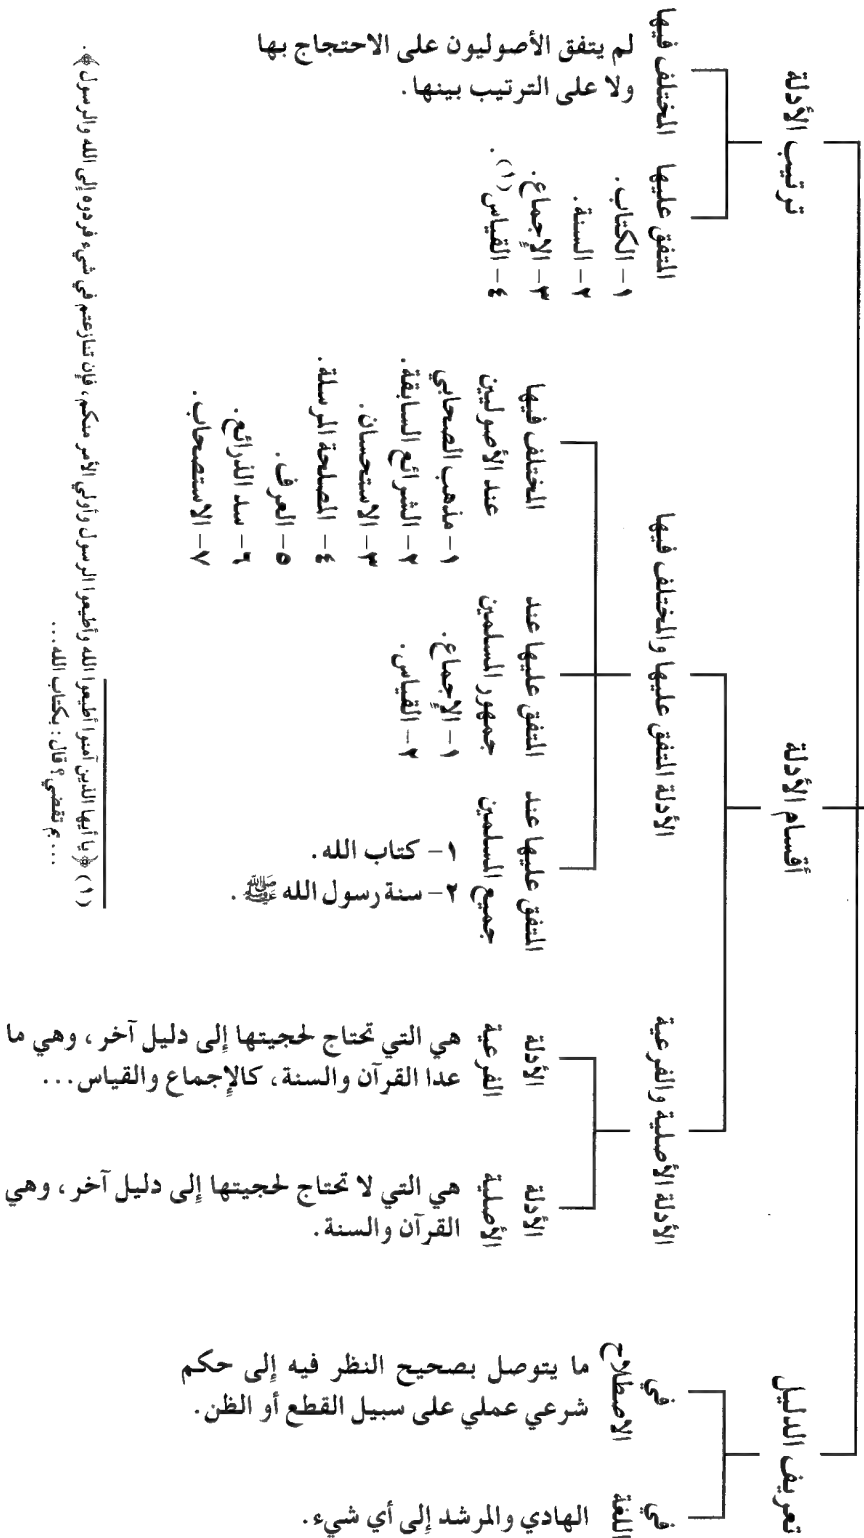 تعريف الدليل
في
اللغة
الهادي والمرشد إلى أي شيء.
في
الاصطلاح
ما يتوصل بصحيح النظر فيه إلى حكم
شرعي عملي على سبيل القطع أو الظن.
أقسام الأدلة
الأدلة الأصلية والفرعية
الأدلة
الأصلية
هي التي لا تحتاج لحجيتها إلى دليل آخر، وهي
القرآن والسنة.
الأدلة
الفرعية
هي التي تحتاج لحجيتها إلى دليل آخر، وهي ما
عدا القرآن والسنة، كالإجماع والقياس...
الأدلة المتفق عليها والمختلف فيها
المتفق عليها عند
جميع المسلمين
١- كتاب الله.
٢- سنة رسول الله ﷺ.
المتفق عليها عند
جمهور المسلمين
١- الإجماع.
٢- القياس.
المختلف فيها
عند الأصوليين
١- مذهب الصحابي
٢- الشرائع السابقة.
٣- الاستحسان.
٤- المصلحة المرسلة.
٥- العرف.
٦- سد الذرائع.
٧- الاستصحاب.
ترتيب الأدلة
المتفق عليها
١- الكتاب.
٢- السنة.
٣- الإجماع.
٤- القياس(١).
المختلف فيها
لم يتفق الأصوليون على الاحتجاج بها
ولا على الترتيب بينها.
(١) ﴿يا أيها الذين آمنوا أطيعوا الله وأطيعوا الرسول وأولي الأمر منكم، فإن تنازعتم في شيء فردوه إلى الله والرسول﴾.
... بم تقضي؟ قال: بكتاب الله...